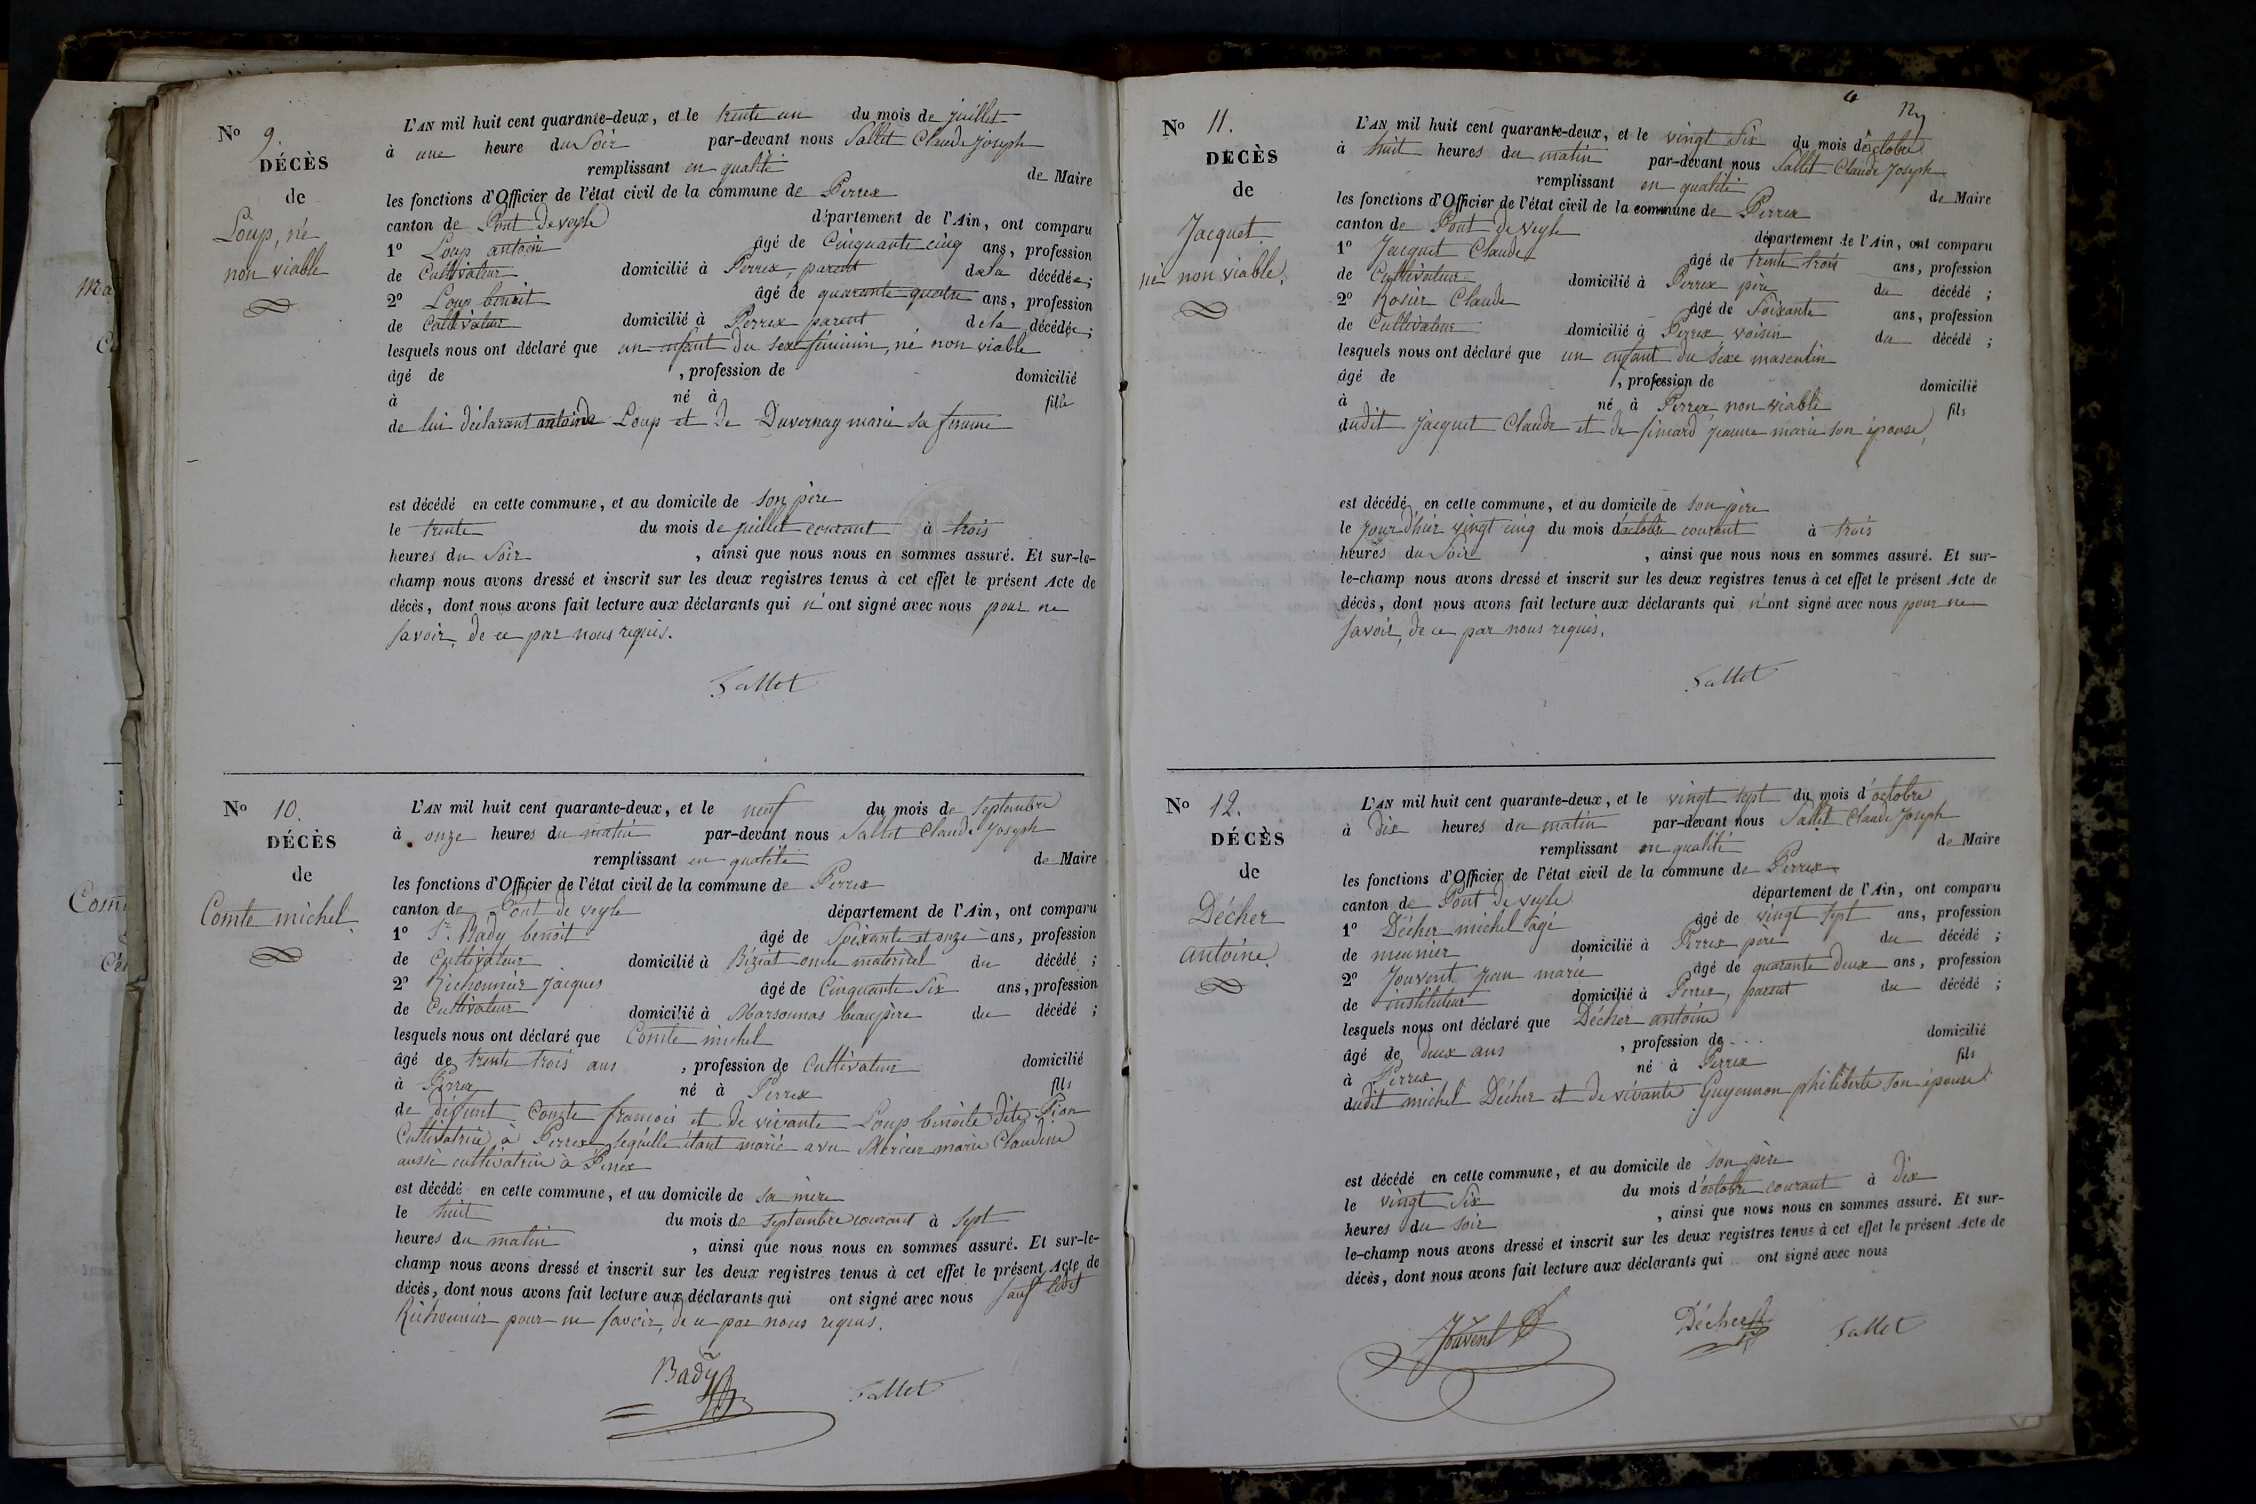 Nº 9.
DÉCÈS
de
Loup, né
non viable
L'AN mil huit cent quarante-deux, et le trente un du mois de juillet
à une heure du Soir par-devant nous Sallet Claude Joseph
remplissant en qualité de Maire
les fonctions d'Officier de l'état civil de la commune de Perrex
canton de Pont de veyle département de l'Ain, ont comparu
1º Loup antoine âgé de Cinquante cinq ans, profession
de Cultivateur domicilié à Perrex, parent de la décédée;
2º Loup benoit âgé de quarante quatre ans, profession
de Cultivateur domicilié à Perrex parent de la décédée;
lesquels nous ont déclaré que un enfant du sexe féminin, né non viable
âgé de , profession de domicilié
à né à fille
de lui déclarant antoine Loup et de Duvernay marie sa femme
est décédé en cette commune, et au domicile de son père
le trente du mois de juillet courant à trois
heures du Soir , ainsi que nous nous en sommes assuré. Et sur-le-
champ nous avons dressé et inscrit sur les deux registres tenus à cet effet le présent Acte de
décès, dont nous avons fait lecture aux déclarants qui n'ont signé avec nous pour ne
savoir, de ce par nous requis.
Sallet
Nº 10.
DÉCÈS
de
Comte michel
L'AN mil huit cent quarante-deux, et le neuf du mois de septembre
à onze heures du matin par-devant nous Sallet Claude Joseph
remplissant en qualité de Maire
les fonctions d'Officier de l'état civil de la commune de Perrex
canton de Pont de veyle département de l'Ain, ont comparu
1º Sr. Bady benoit âgé de Soixante et onze ans, profession
de Cultivateur domicilié à Biziat oncle maternel du décédé;
2º Richonnier Jacques âgé de Cinquante Six ans, profession
de Cultivateur domicilié à Marsonnas beaupère du décédé;
lesquels nous ont déclaré que Comte michel
âgé de trente trois ans , profession de Cultivateur domicilié
à Perrex né à Perrex fils
de défunt Comte francois et de vivante Loup benoite dite Pion
Cultivatrice à Perrex, lequel étant marié avec Mercier marie Claudine
aussi cultivatrice à Perrex
est décédé en cette commune, et au domicile de sa mère
le huit du mois de septembre courant à sept
heures du matin , ainsi que nous nous en sommes assuré. Et sur-le-
champ nous avons dressé et inscrit sur les deux registres tenus à cet effet le présent Acte de
décès, dont nous avons fait lecture aux déclarants qui ont signé avec nous sauf ledit
Richonnier pour ne savoir, de ce par nous requis.
Bady Sallet
Nº 11.
DÉCÈS
de
Jacquet
né non viable.
L'AN mil huit cent quarante-deux, et le vingt Six du mois d'octobre
à huit heures du matin par-devant nous Sallet Claude Joseph
remplissant en qualité de Maire
les fonctions d'Officier de l'état civil de la commune de Perrex
canton de Pont de veyle département de l'Ain, ont comparu
1º Jacquet Claude âgé de trente trois ans, profession
de Cultivateur domicilié à Perrex père du décédé;
2º Rosier Claude âgé de Soixante ans, profession
de Cultivateur domicilié à Perrex, voisin du décédé;
lesquels nous ont déclaré que un enfant du sexe masculin
âgé de , profession de domicilié
à né à Perrex, non viable fils
dudit Jacquet Claude et de simard jeanne marie son épouse,
est décédé en cette commune, et au domicile de son père
le jour d'hier vingt cinq du mois d'octobre courant à trois
heures du Soir , ainsi que nous nous en sommes assuré. Et sur-
le-champ nous avons dressé et inscrit sur les deux registres tenus à cet effet le présent Acte de
décès, dont nous avons fait lecture aux déclarants qui n'ont signé avec nous pour ne
savoir, de ce par nous requis.
Sallet
Nº 12.
DÉCÈS
de
Décher
antoine
L'AN mil huit cent quarante-deux, et le vingt sept du mois d'octobre
à dix heures du matin par-devant nous Sallet Claude Joseph
remplissant en qualité de Maire
les fonctions d'Officier de l'état civil de la commune de Perrex
canton de Pont de veyle département de l'Ain, ont comparu
1º Décher michel âgé âgé de vingt sept ans, profession
de meunier domicilié à Perrex père du décédé;
2º Jouvent Jean marie âgé de quarante deux ans, profession
de instituteur domicilié à Perrex, parent du décédé;
lesquels nous ont déclaré que Décher antoine
âgé de deux ans , profession de domicilié
à Perrex né à Perrex fils
dudit michel Décher et de vivante Guyennon philiberte son épouse
est décédé en cette commune, et au domicile de son père
le vingt Six du mois d'octobre courant à dix
heures du soir , ainsi que nous nous en sommes assuré. Et sur-
le-champ nous avons dressé et inscrit sur les deux registres tenus à cet effet le présent Acte de
décès, dont nous avons fait lecture aux déclarants qui ont signé avec nous
Jouvent Décher Sallet